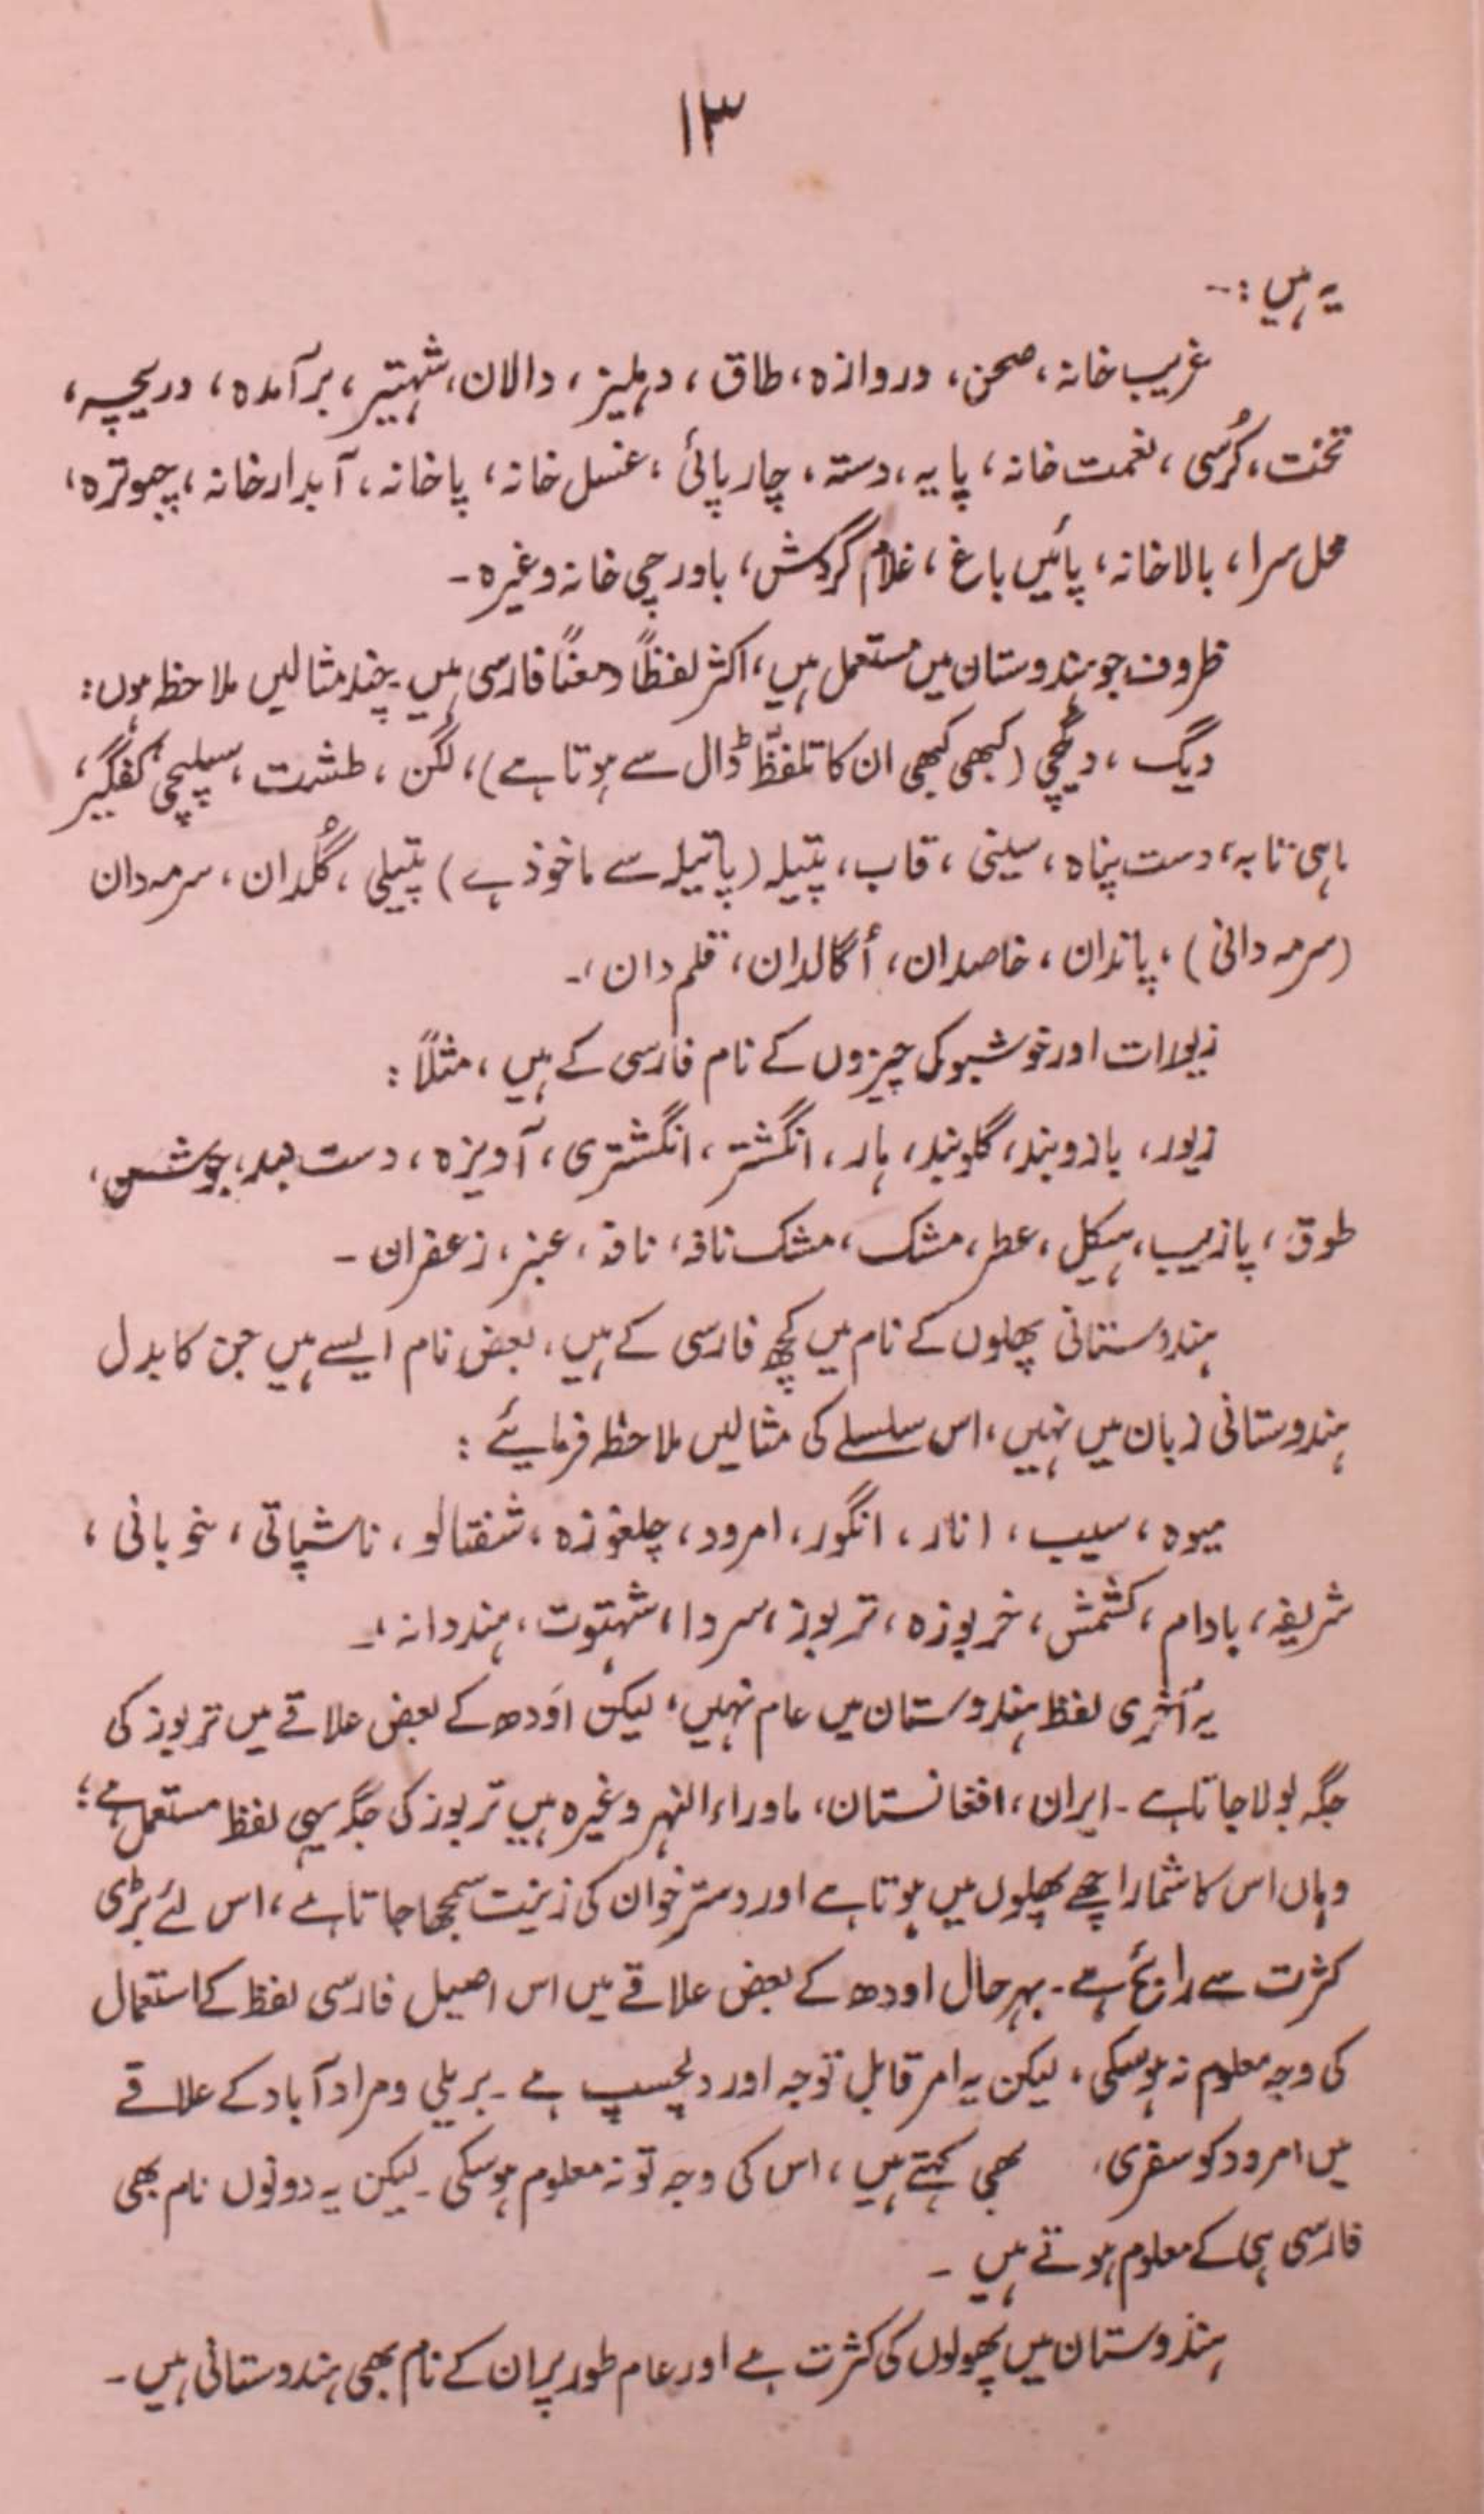 ۱۳
یہ ہیں :-
غریب خانہ، صحن، دروازہ، طاق، دہلیز، دالان، شہتیر، برآمدہ، دریچہ،
تخت، کُرسی، نعمت خانہ، پایہ، دستہ، چارپائی، غسل خانہ، پاخانہ، آبدارخانہ، چبوترہ،
محل سرا، بالاخانہ، پائیں باغ، غلام گردش، باورچی خانہ وغیرہ۔
ظروف جو ہندوستان میں مستعمل ہیں، اکثر لفظاً و معناً فارسی ہیں۔ چند مثالیں ملاحظہ ہوں:
دیگ، دیگچی (کبھی کبھی ان کا تلفّظ ڈال سے ہوتا ہے)، لگن، طشت، سیلپچی، کفگیر،
ماہی تابہ، دست پناہ، سینی، قاب، پتیلہ (پاتیلہ سے ماخوذ ہے) پتیلی، گُلدان، سرمہ دان
(سرمہ دانی)، پاندان، خاصدان، اُگالدان، قلم دان،۔
زیورات اور خوشبو کی چیزوں کے نام فارسی کے ہیں، مثلاً:
زیور، بازوبند، گلوبند، ہار، انگشتر، انگشتری، آویزہ، دست بند، جوشن،
طوق، پازیب، ہیکل، عطر، مشک، مشک نافہ، نافہ، عنبر، زعفران۔
ہندوستانی پھلوں کے نام میں کچھ فارسی کے ہیں، بعض نام ایسے ہیں جن کا بدل
ہندوستانی زبان میں نہیں، اس سلسلے کی مثالیں ملاحظہ فرمائیے:
میوہ، سیب، انار، انگور، امرود، چلغوزہ، شفتالو، ناشپاتی، خوبانی،
شریفہ، بادام، کشمش، خربوزہ، تربوز، سردا، شہتوت، ہندوانہ،۔
یہ آخری لفظ ہندوستان میں عام نہیں، لیکن اَودھ کے بعض علاقے میں تربوز کی
جگہ بولا جاتا ہے۔ ایران، افغانستان، ماوراء النہر وغیرہ میں تربوز کی جگہ یہی لفظ مستعمل ہے؛
وہاں اس کا شمار اچھے پھلوں میں ہوتا ہے اور دسترخوان کی زینت سمجھا جاتا ہے، اس لئے بڑی
کثرت سے رائج ہے۔ بہرحال اودھ کے بعض علاقے میں اس اصیل فارسی لفظ کے استعمال
کی وجہ معلوم نہ ہوسکی، لیکن یہ امر قابل توجہ اور دلچسپ ہے۔ بریلی و مراد آباد کے علاقے
میں امرود کو سفری، بھی کہتے ہیں، اس کی وجہ تو نہ معلوم ہوسکی۔ لیکن یہ دونوں نام بھی
فارسی ہی کے معلوم ہوتے ہیں۔
ہندوستان میں پھولوں کی کثرت ہے اور عام طور پر ان کے نام بھی ہندوستانی ہیں۔